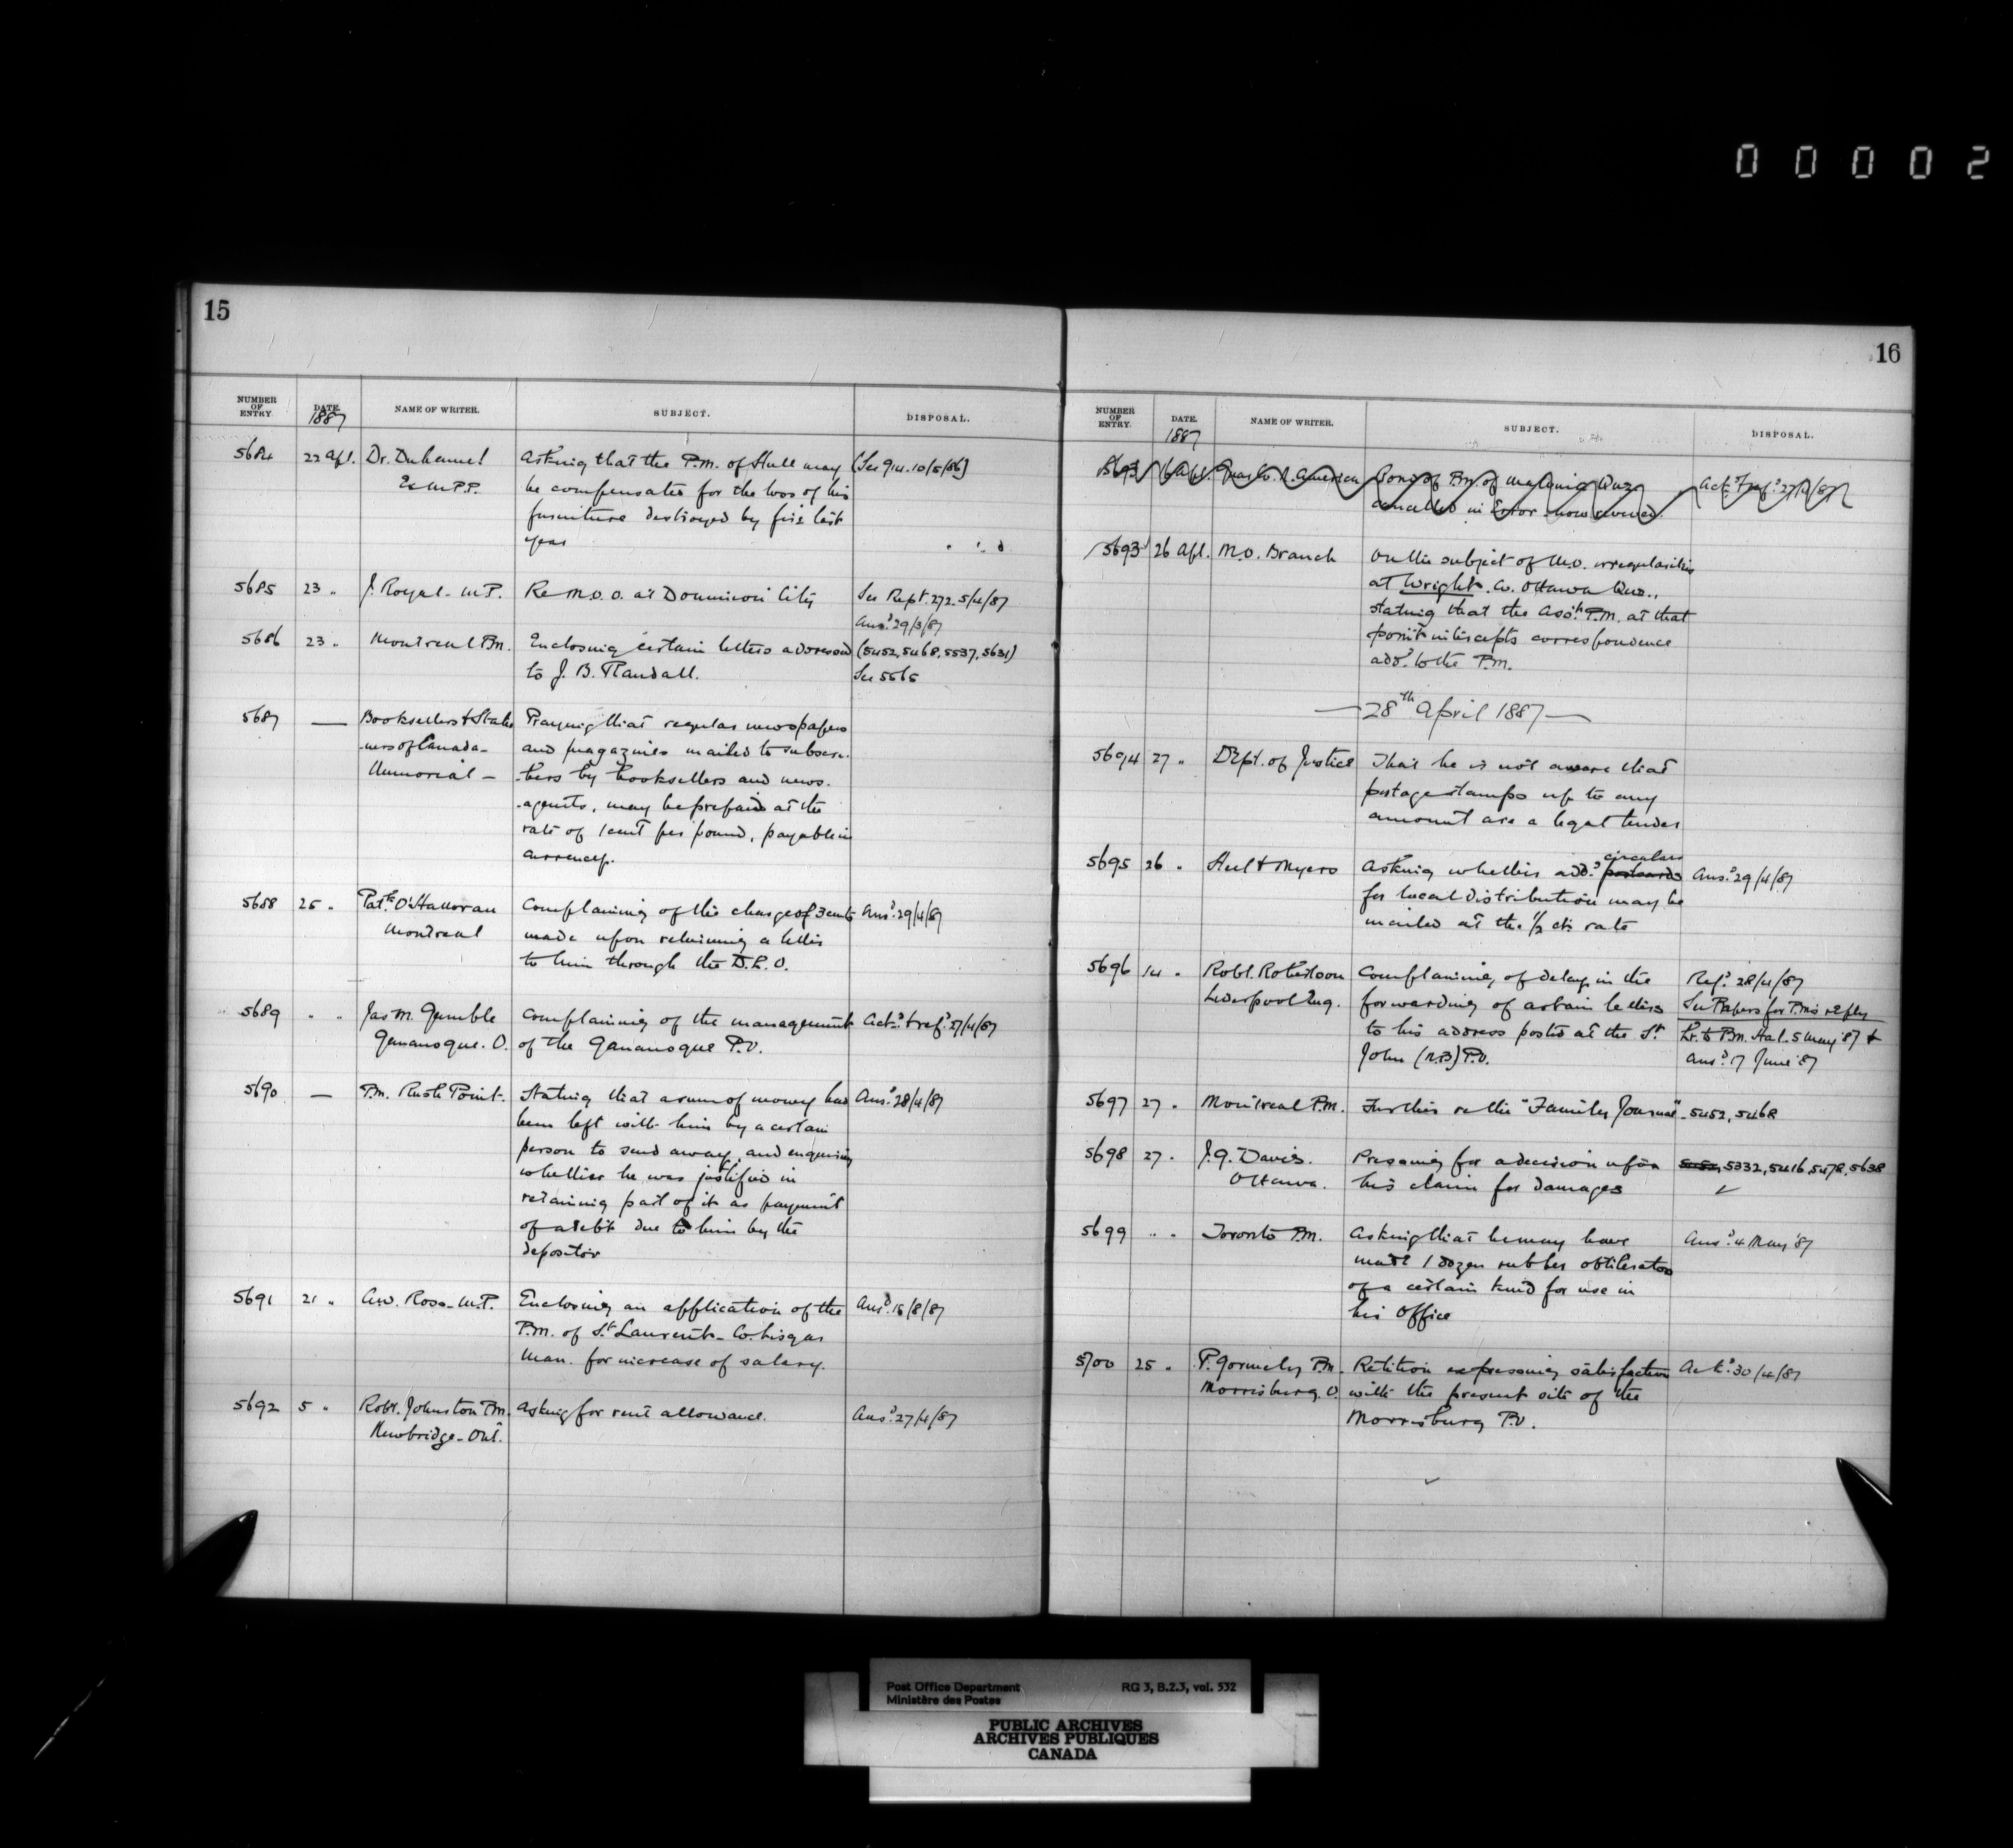 00002
15
NUMBER OF ENTRY. DATE. 1887 NAME OF WRITER. SUBJECT. DISPOSAL.
5684 22 Apl. Dr. Duhamel Asking that the P.M. of Hull may (See 914. 10/5/86)
Ex M.P.P. be compensated for the loss of his
furniture destroyed by fire last
year
5685 23 " J. Royal - M.P. Re M.O.O. at Dominion City See Rept. 272. 5/4/87
Ansd. 29/3/87
5686 23 " Montreal P.M. Enclosing certain letters addressed (5452, 5468, 5537, 5631)
to J. B. Randall. See 5565
5687 — Booksellers & Statio Praying that regular newspapers
-ners of Canada - and magazines mailed to subscri-
Memorial - -bers by booksellers and news-
-agents, may be prepaid at the
rate of 1 cent per pound, payable in
currency.
5688 25 " Patk. O'Halloran Complaining of the charge of 3 cents Ansd. 29/4/87
Montreal made upon returning a letter
to him through the D.L.O.
5689 " " Jas M. Gamble Complaining of the management Ackd. & refd. 27/4/87
Gananoque. O. of the Gananoque P.O.
5690 — P.M. Rush Point. Stating that a sum of money had Ansd. 28/4/87
been left with him by a certain
person to send away, and enquiring
whether he was justified in
retaining part of it as payment
of a debt due to him by the
depositor
5691 21 " A.W. Ross - M.P. Enclosing an application of the Ansd. 16/8/87
P.M. of St. Laurent - Co. Lisgar
Man. for increase of salary.
5692 5 " Robt. Johnston P.M. Asking for rent allowance. Ansd. 27/4/87
Newbridge - Ont.
16
NUMBER OF ENTRY. DATE. 1887 NAME OF WRITER. SUBJECT. DISPOSAL.
5693 16 Apl. Guar. Co. N. America Bond of P.M. of Que. Ackd. & refd. 27/4/87
cancelled in Error now renewed.
5693 26 Apl. M.O. Branch On the subject of M.O. irregularities
at Wright. Co. Ottawa Que.,
stating that the Asst. P.M. at that
point intercepts correspondence
addd. to the P.M.
— 28th April 1887 —
5694 27 " Dept. of Justice That he is not aware that
postage stamps up to any
amount are a legal tender
circulars
5695 26 " Asking whether addd. postcards Ansd. 29/4/87
for local distribution may be
mailed at the 1/2 ct. rate
5696 14 " Robt. Robertson Complaining of delay in the Refd. 28/4/87
Liverpool Eng. forwarding of certain letters See Papers for P.M's reply
to his address posted at the St. Lr. to P.M. Hal. 5 May '87 &
John (N.B) P.O. ansd. 17 June '87
5697 27 " Montreal P.M. Further re the "Family Journal" - 5452, 5468
5698 27 " J.G. Davis. Pressing for a decision upon 5332, 5416, 5478, 5638
Ottawa. his claim for damages
5699 " " Toronto P.M. Asking that he may have Ansd. 4 May '87
made 1 dozen rubber obliterators
of a certain kind for use in
his Office
5700 25 " P. Gormely P.M. Petition expressing satisfaction Ackd. 30/4/87
Morrisburg. O. with the present site of the
Morrisburg P.O.
Post Office Department RG 3, B.2.3, vol. 532
Ministère des Postes
PUBLIC ARCHIVES
ARCHIVES PUBLIQUES
CANADA